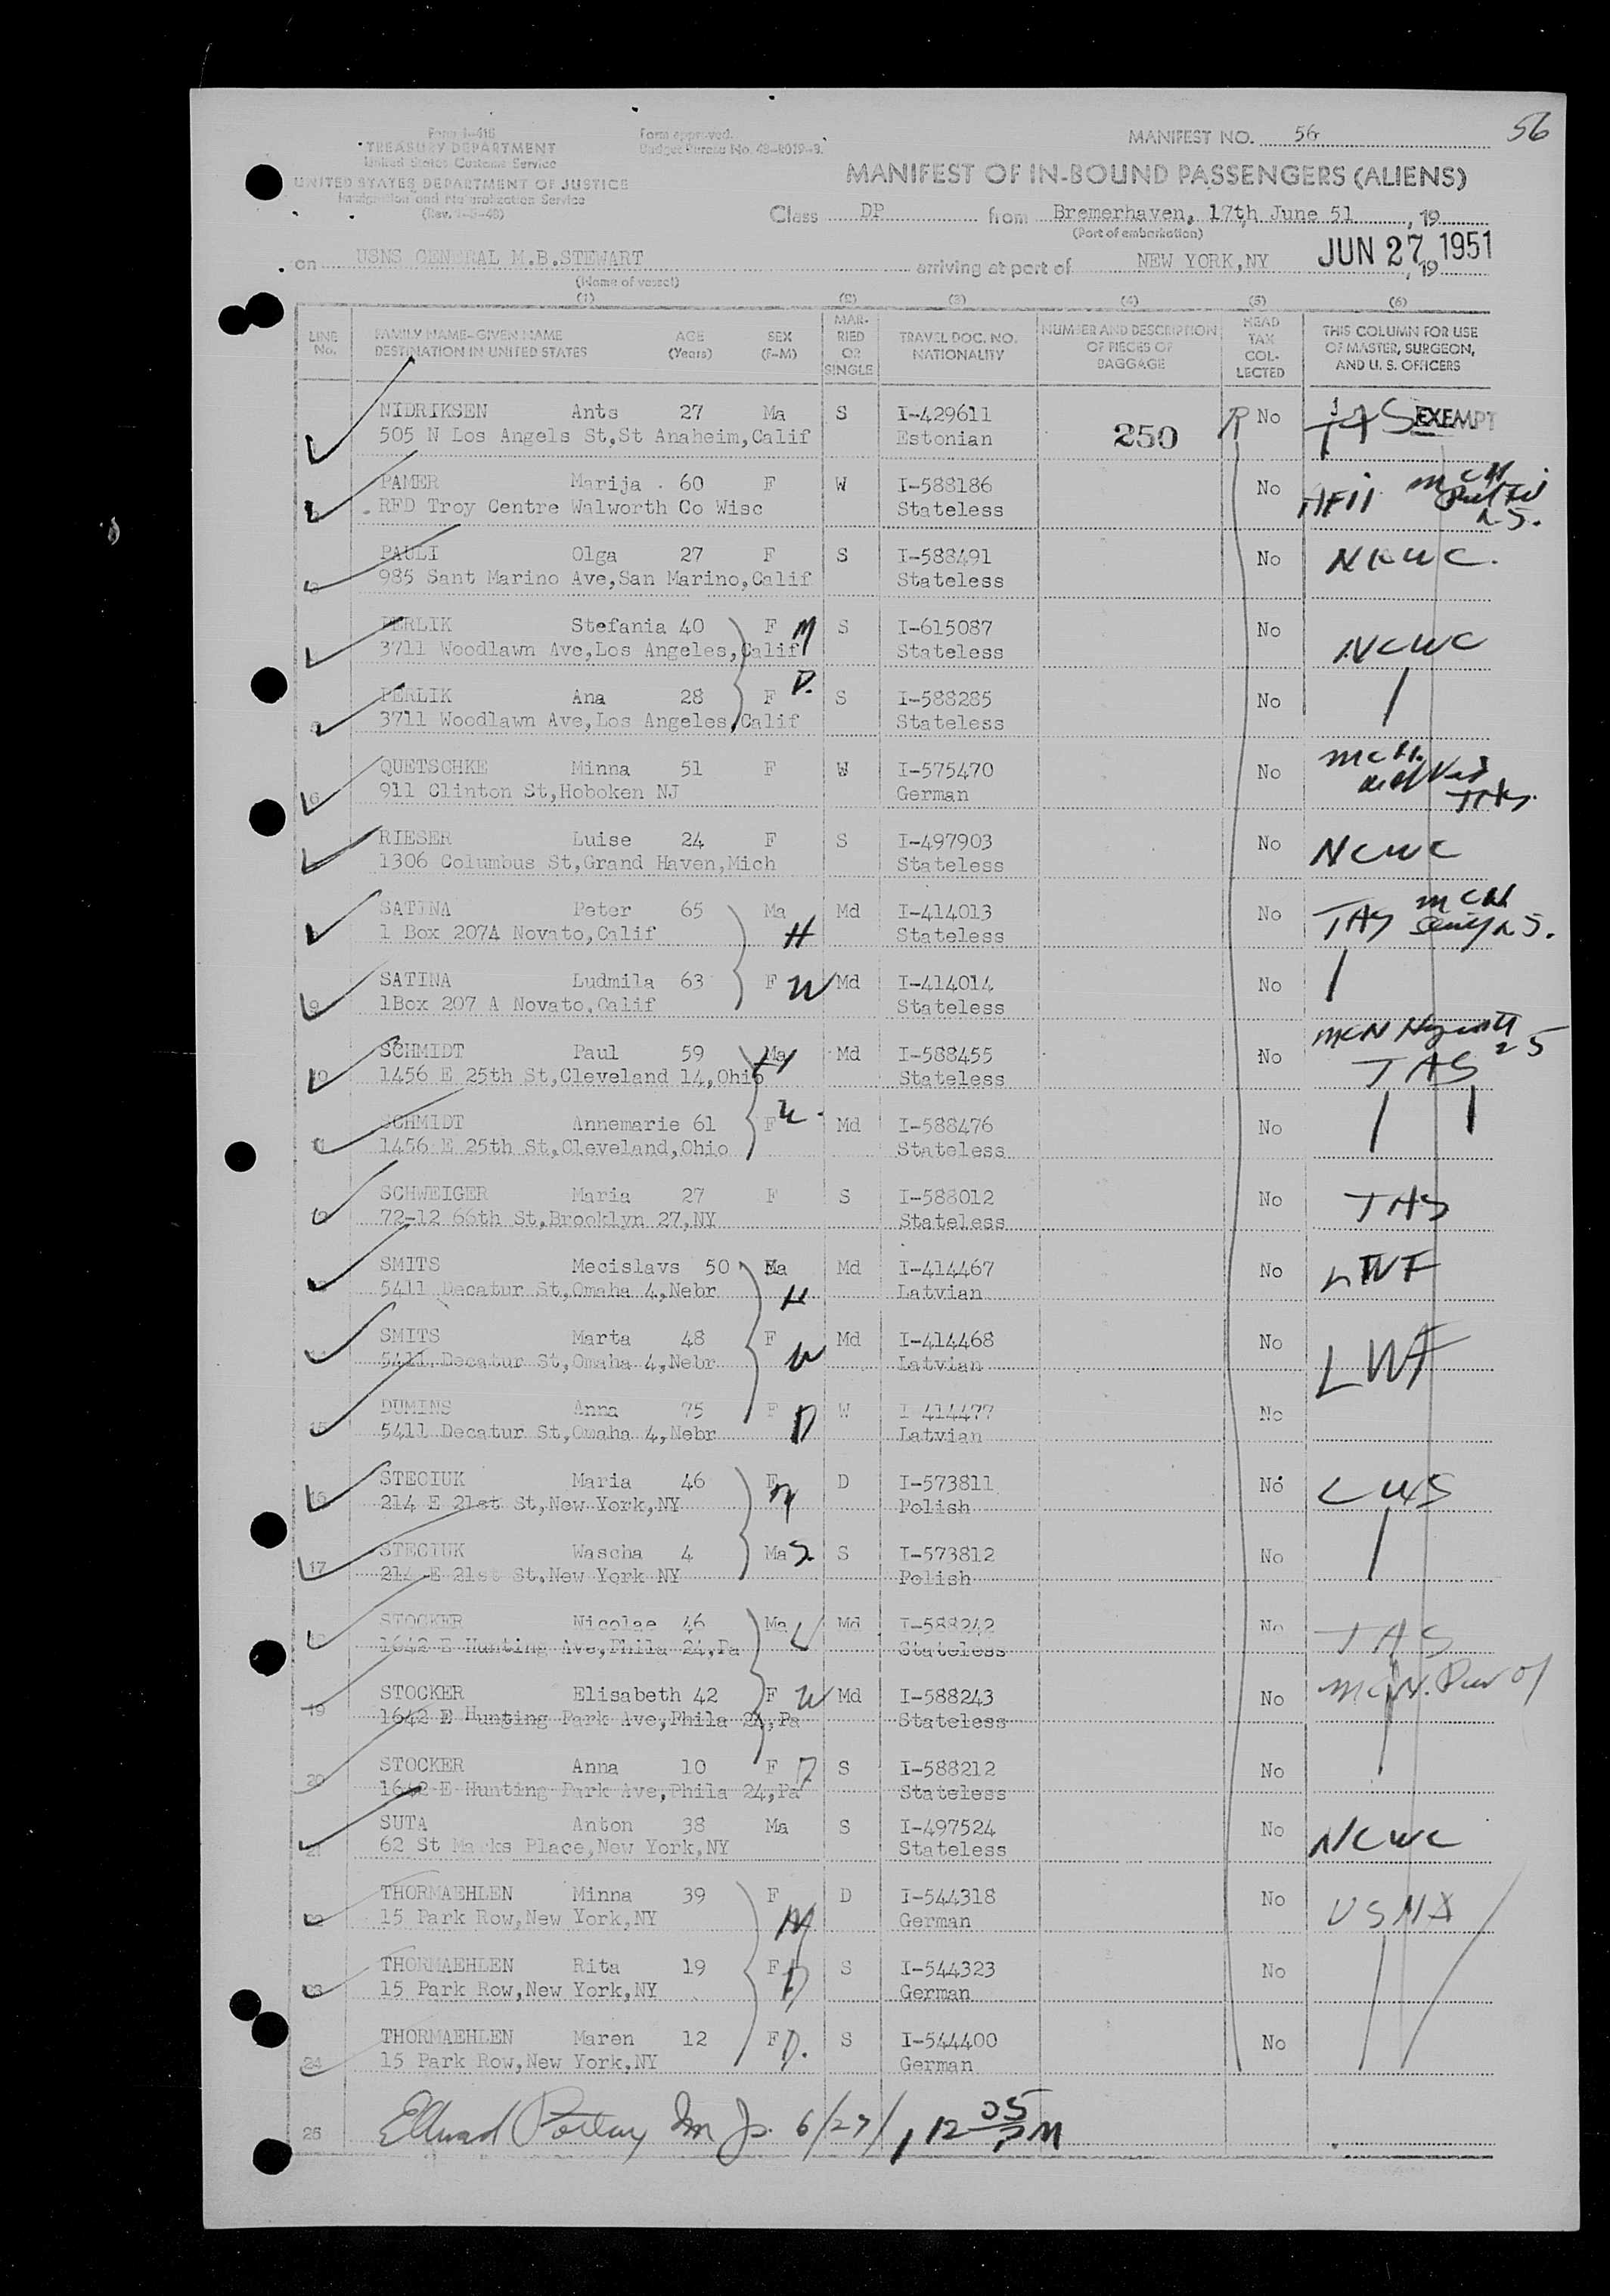 56
Form I-418
TREASURY DEPARTMENT
United States Customs Service
UNITED STATES DEPARTMENT OF JUSTICE
Immigration and Naturalization Service
Form approved.
Budget Bureau No. 43-R019-3.
MANIFEST NO. 56
MANIFEST OF IN-BOUND PASSENGERS (ALIENS)
Class DP from Bremerhaven, 17th June 51, 19
(Port of embarkation)
on USNS GENERAL M.B.STEWART arriving at port of NEW YORK,NY JUN 27 1951, 19
(Name of vessel)
(1) (2) (3) (4) (5) (6)
LINE No. FAMILY NAME-GIVEN NAME DESTINATION IN UNITED STATES AGE (Years) SEX (F-M) MARRIED OR SINGLE TRAVEL DOC. NO. NATIONALITY NUMBER AND DESCRIPTION OF PIECES OF BAGGAGE HEAD TAX COLLECTED THIS COLUMN FOR USE OF MASTER, SURGEON, AND U. S. OFFICERS
NIDRIKSEN Ants 27 Ma S I-429611 No TAS EXEMPT
505 N Los Angels St,St Anaheim,Calif Estonian 250
PAMER Marija 60 F W I-588186 No
RFD Troy Centre Walworth Co Wisc Stateless
PAULI Olga 27 F S I-588491 No NCWC
985 Sant Marino Ave,San Marino,Calif Stateless
PERLIK Stefania 40 F M S I-615087 No NCWC
3711 Woodlawn Ave,Los Angeles,Calif Stateless
PERLIK Ana 28 F D. S I-588285 No
3711 Woodlawn Ave,Los Angeles,Calif Stateless
6 QUETSCHKE Minna 51 F W I-575470 No
911 Clinton St,Hoboken NJ German TAS
RIESER Luise 24 F S I-497903 No NCWC
1306 Columbus St,Grand Haven,Mich Stateless
SATINA Peter 65 Ma H Md I-414013 No TAS
1 Box 207A Novato,Calif Stateless
9 SATINA Ludmila 63 F W Md I-414014 No
1Box 207 A Novato,Calif Stateless
10 SCHMIDT Paul 59 Ma H Md I-588455 No TAS
1456 E 25th St,Cleveland 14,Ohio Stateless
11 SCHMIDT Annemarie 61 F W Md I-588476 No
1456 E 25th St,Cleveland,Ohio Stateless
12 SCHWEIGER Maria 27 F S I-588012 No TAS
72-12 66th St,Brooklyn 27,NY Stateless
SMITS Mecislavs 50 Ma H Md I-414467 No LWF
5411 Decatur St,Omaha 4,Nebr Latvian
SMITS Marta 48 F W Md I-414468 No LWF
5411 Decatur St,Omaha 4,Nebr Latvian
15 DUMINS Anna 75 F D W I 414477 No
5411 Decatur St,Omaha 4,Nebr Latvian
16 STECIUK Maria 46 F M D I-573811 No CWS
214 E 21st St,New York,NY Polish
17 STECIUK Wascha 4 Ma S. S I-573812 No
214 E 21st St,New York NY Polish
STOCKER Nicolae 46 Ma Md I-588242 No TAS
1642 E Hunting Ave,Phila 24,Pa Stateless
19 STOCKER Elisabeth 42 F W Md I-588243 No
1642 E Hunting Park Ave,Phila 24,Pa Stateless
20 STOCKER Anna 10 F D S I-588212 No
1642 E Hunting Park Ave,Phila 24,Pa Stateless
21 SUTA Anton 38 Ma S I-497524 No NCWC
62 St Marks Place,New York,NY Stateless
22 THORMAEHLEN Minna 39 F M D I-544318 No USNA
15 Park Row,New York,NY German
23 THORMAEHLEN Rita 19 F D S I-544323 No
15 Park Row,New York,NY German
24 THORMAEHLEN Maren 12 F D. S I-544400 No
15 Park Row,New York,NY German
25 6/27/, 12 05 PM